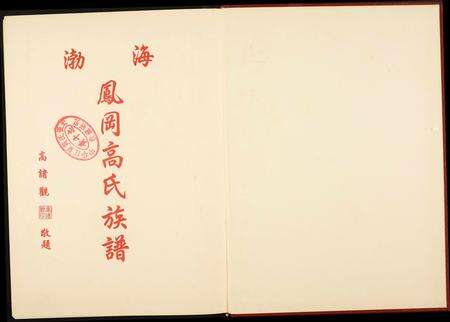 渤海
鳳岡高氏族譜
高諸觀
敬題